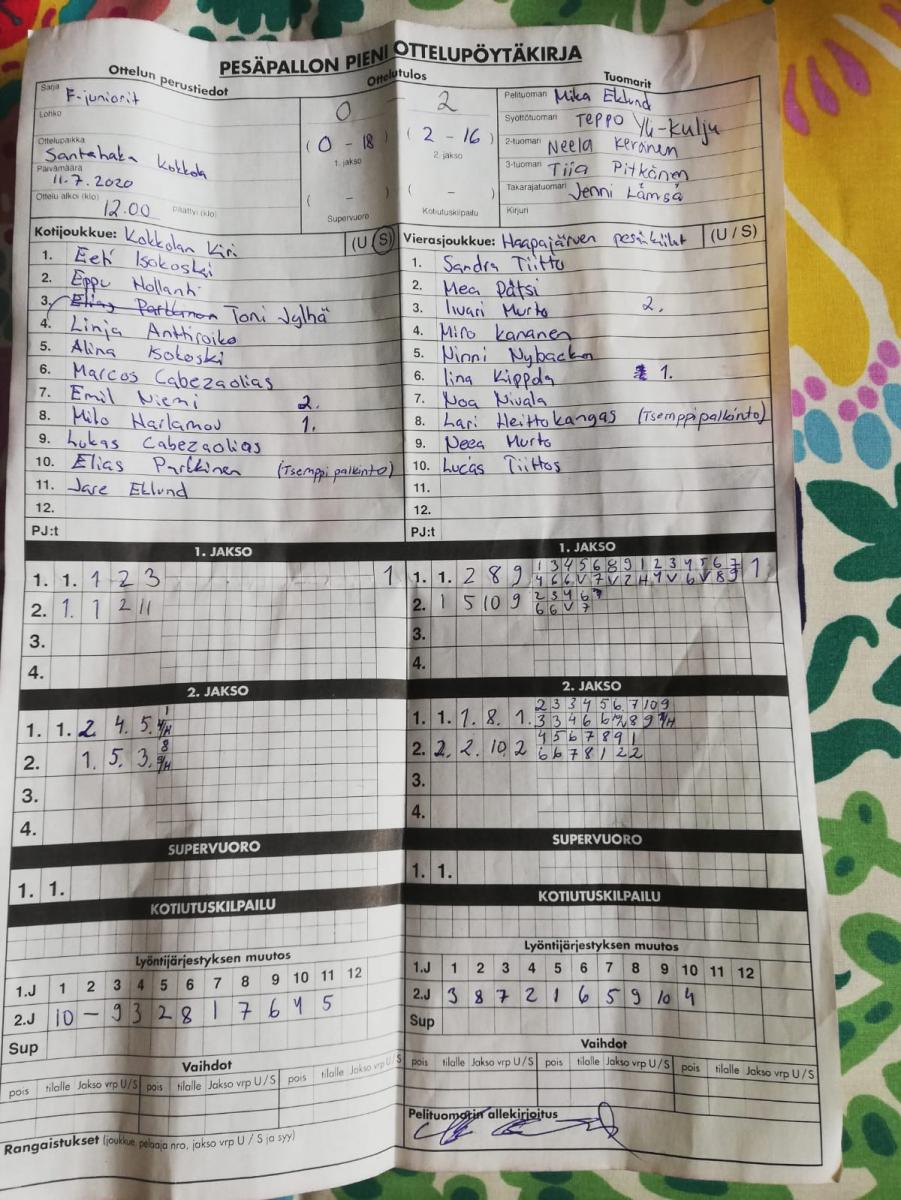 PESÄPALLON PIENI OTTELUPÖYTÄKIRJA
Ottelun perustiedot
Sarja F-juniorit
Lohko
Ottelupaikka
Santahaka Kokkola
Päivämäärä
11.7.2020
Ottelu alkoi (klo) 12.00 päättyi (klo)
Ottelutulos
0 - 2
(0 - 18) (2 - 16)
1. jakso 2. jakso
( - ) ( - )
Supervuoro Kotiutuskilpailu
Tuomarit
Pelituomari Mika Eklund
Syöttötuomari Teppo Yli-Kulju
2-tuomari Neela Keränen
3-tuomari Tiia Pitkänen
Takarajatuomari Jenni Lämsä
Kirjuri
Kotijoukkue: Kokkolan Kiri (U/S)
1. Eeti Isokoski
2. Eppu Hollanti
3. Elias Parkkonen Toni Jylhä
4. Linja Anttiroiko
5. Alina Isokoski
6. Marcos Cabezaolias
7. Emil Niemi 2.
8. Milo Harlamov 1.
9. Lukas Cabezaolias
10. Elias Parkkinen (Tsemppipalkinto)
11. Jare Eklund
12.
PJ:t
Vierasjoukkue: Haapajärven pesäkiilat (U/S)
1. Sandra Tiitto
2. Mea Pätsi
3. Iivari Murto 2.
4. Miro Kananen
5. Ninni Nybacka
6. Iina Kippola 1.
7. Noa Nivala
8. Lari Heittokangas (Tsemppipalkinto)
9. Neea Murto
10. Lucas Tiittos
11.
12.
PJ:t
1. JAKSO
1. 1. 1 2 3 1
2. 1. 1 2 11
3.
4.
1. JAKSO
1 3 4 5 6 8 9 1 2 3 4 5 6 7
1. 1. 2 8 9 4 6 6 V 7 V 2 H 4 V 6 V 8 9 1
2 3 4 6
2. 1 5 10 9 6 6 V 7
3.
4.
2. JAKSO
1
1. 1. 2 4. 5. 4/H
8
2. 1. 5. 3. 9/H
3.
4.
2. JAKSO
2 3 3 4 5 6 7 10 9
1. 1. 1. 8. 1. 3 3 4 6 6 8 9
4 5 6 7 8 9 1
2. 2. 2. 10. 2 6 6 7 8 1 2 2
3.
4.
SUPERVUORO
1. 1.
SUPERVUORO
1. 1.
KOTIUTUSKILPAILU
KOTIUTUSKILPAILU
Lyöntijärjestyksen muutos
1.J 1 2 3 4 5 6 7 8 9 10 11 12
2.J 10 - 9 3 2 8 1 7 6 4 5
Sup
Lyöntijärjestyksen muutos
1.J 1 2 3 4 5 6 7 8 9 10 11 12
2.J 3 8 7 2 1 6 5 9 10 4
Sup
Vaihdot
pois tilalle Jakso vrp U/S pois tilalle Jakso vrp U/S pois tilalle Jakso vrp U/S
Vaihdot
pois tilalle Jakso vrp U/S pois tilalle Jakso vrp U/S pois tilalle Jakso vrp U/S
Rangaistukset (joukkue, pelaaja nro, jakso vrp U / S ja syy)
Pelituomarin allekirjoitus